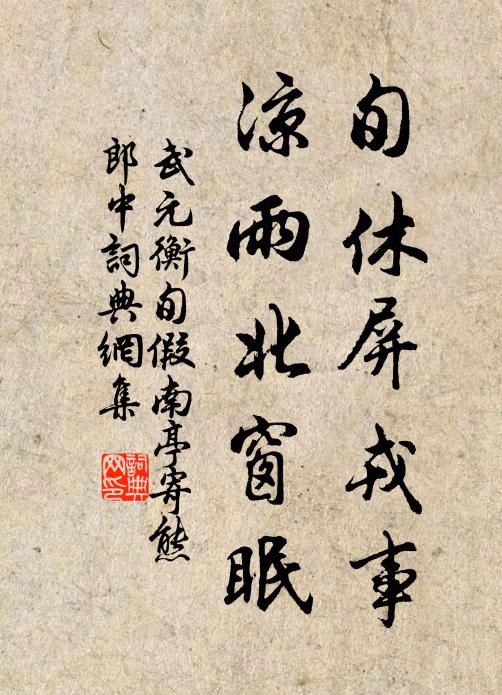 旬休屏戎事
凉雨北窗眠
武元衡旬假南亭寄熊
郎中詞典網集
詞典網印